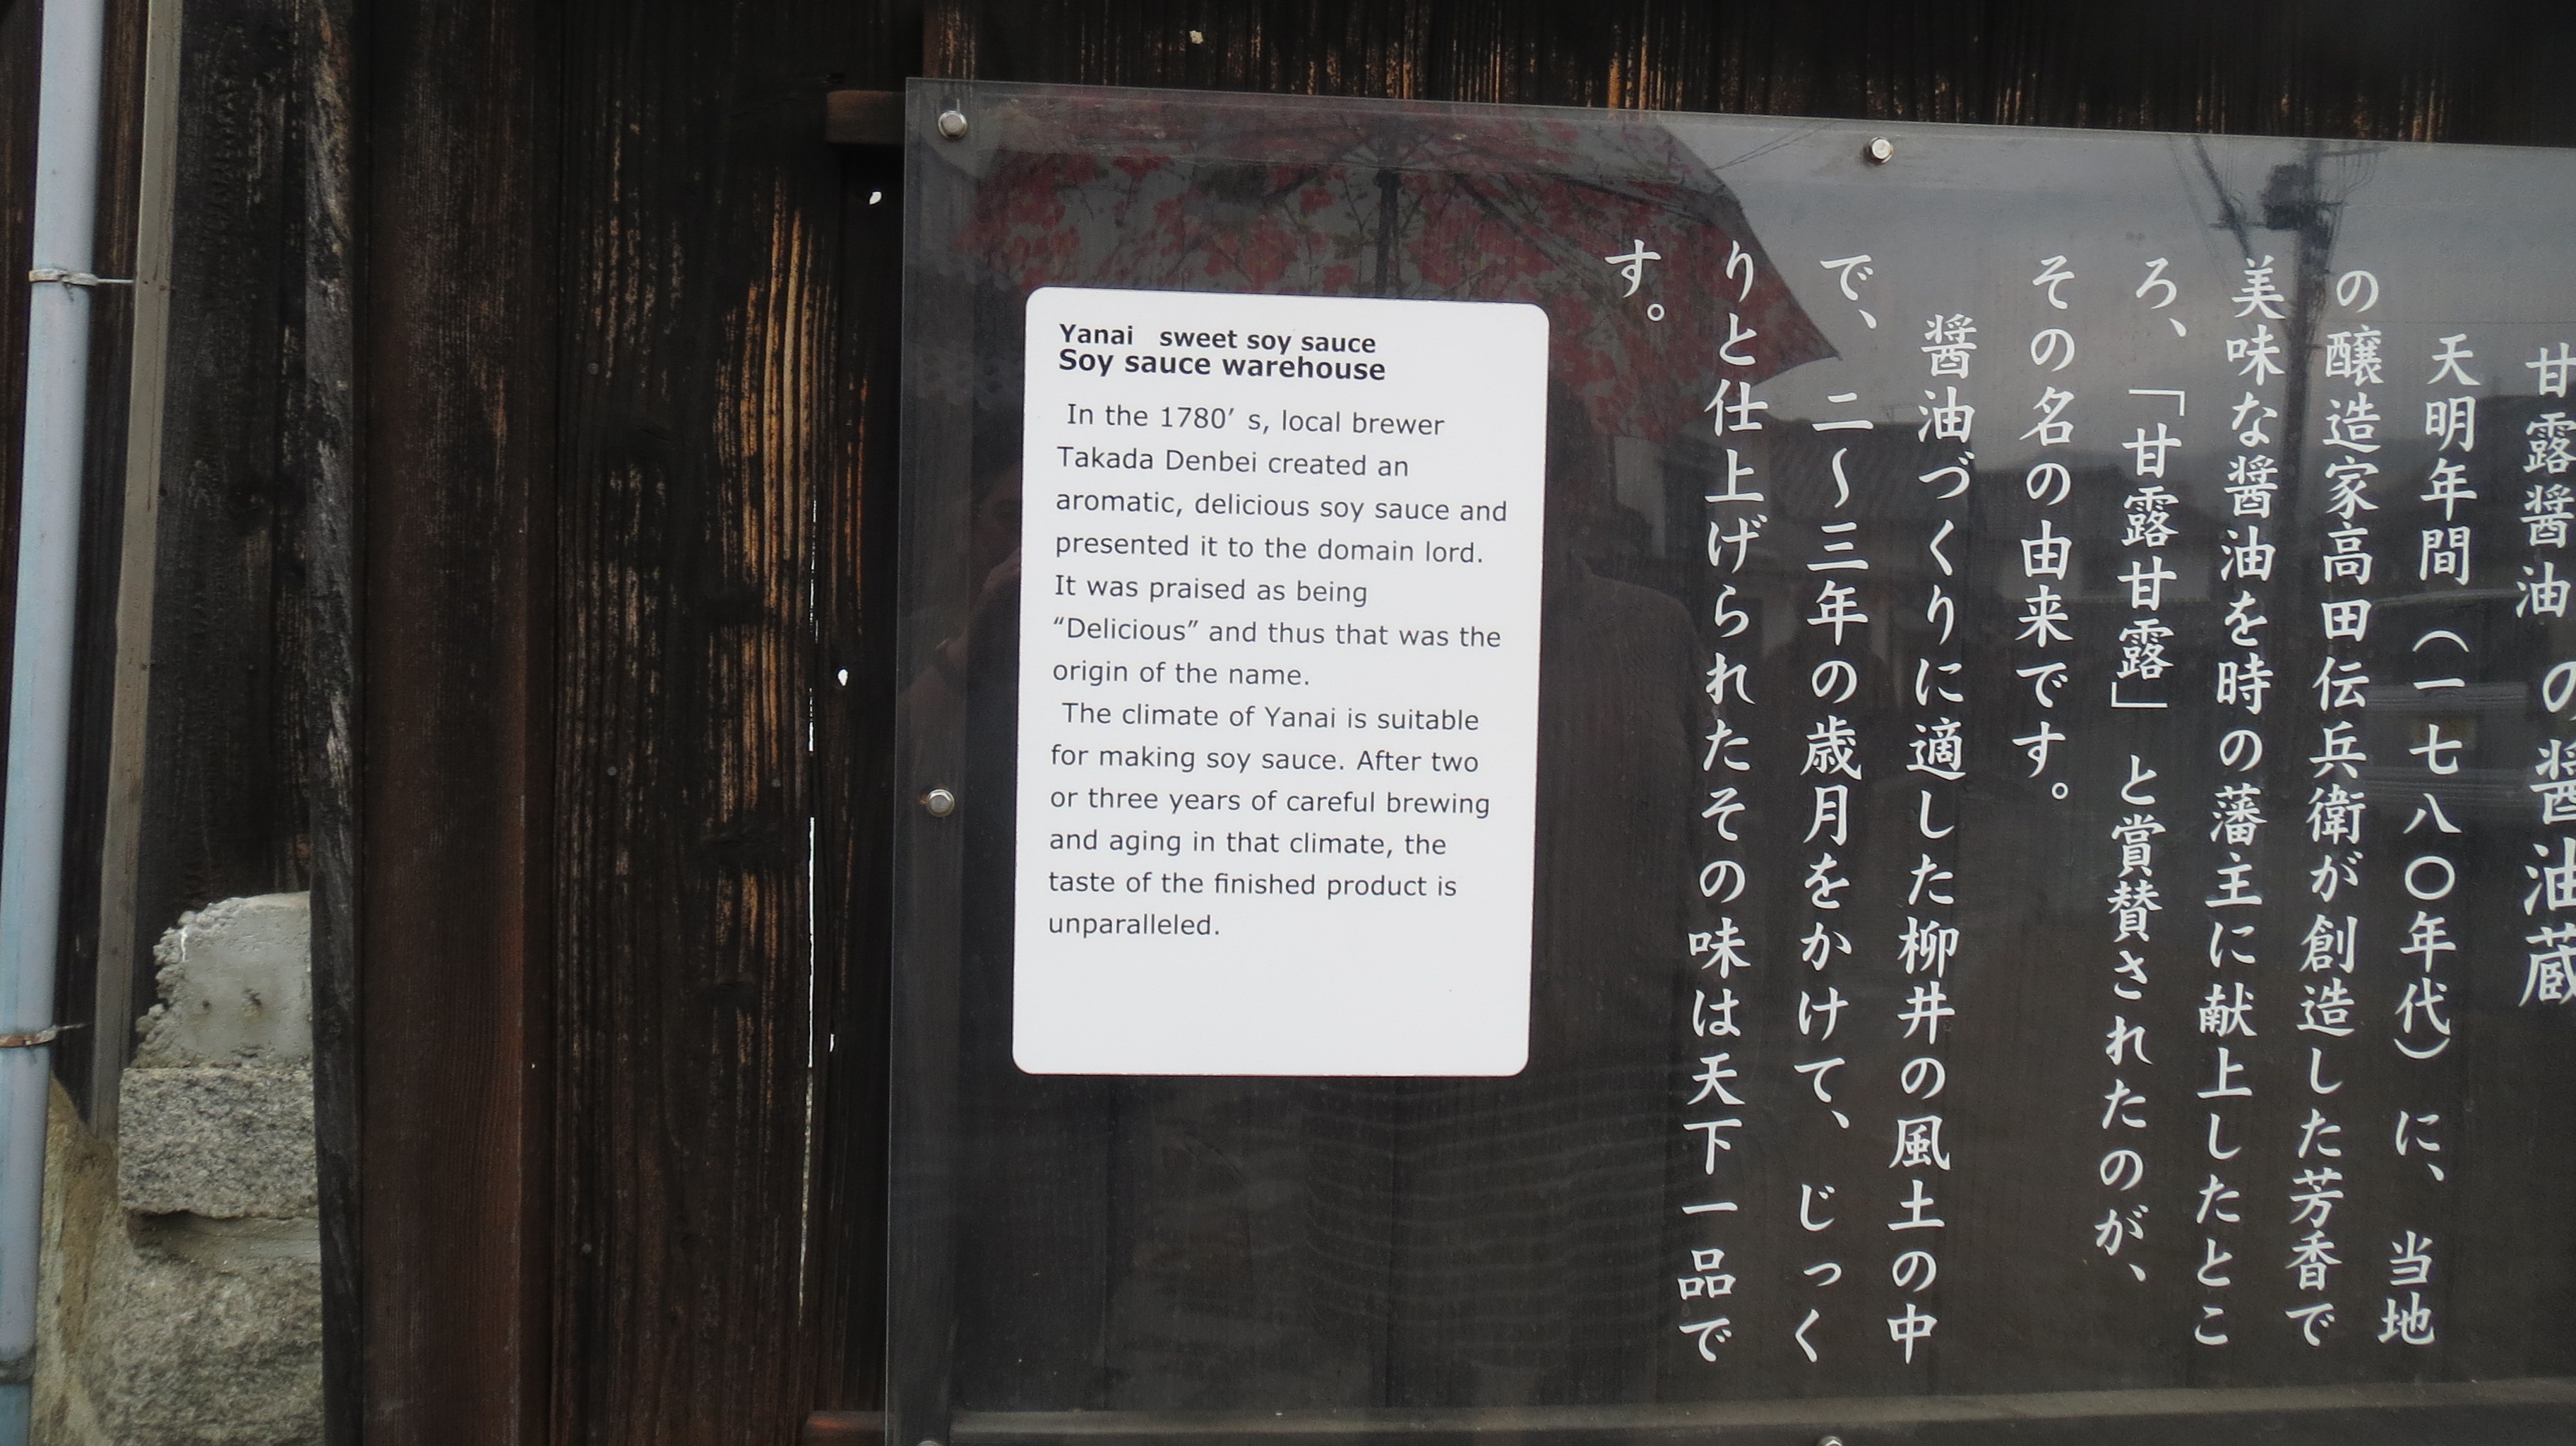 Yanai sweet soy sauce
Soy sauce warehouse
In the 1780’ s, local brewer
Takada Denbei created an
aromatic, delicious soy sauce and
presented it to the domain lord.
It was praised as being
“Delicious” and thus that was the
origin of the name.
The climate of Yanai is suitable
for making soy sauce. After two
or three years of careful brewing
and aging in that climate, the
taste of the finished product is
unparalleled.
甘露醤油の醤油蔵
天明年間(一七八〇年代)に、当地
の醸造家高田伝兵衛が創造した芳香で
美味な醤油を時の藩主に献上したとこ
ろ、「甘露甘露」と賞賛されたのが、
その名の由来です。
醤油づくりに適した柳井の風土の中
で、二〜三年の歳月をかけて、じっく
りと仕上げられたその味は天下一品で
す。